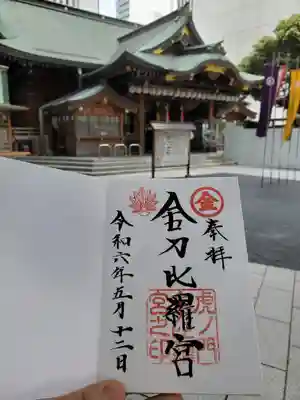 奉拝
金
金刀比羅宮
虎ノ門
宮之印
令和六年五月十二日